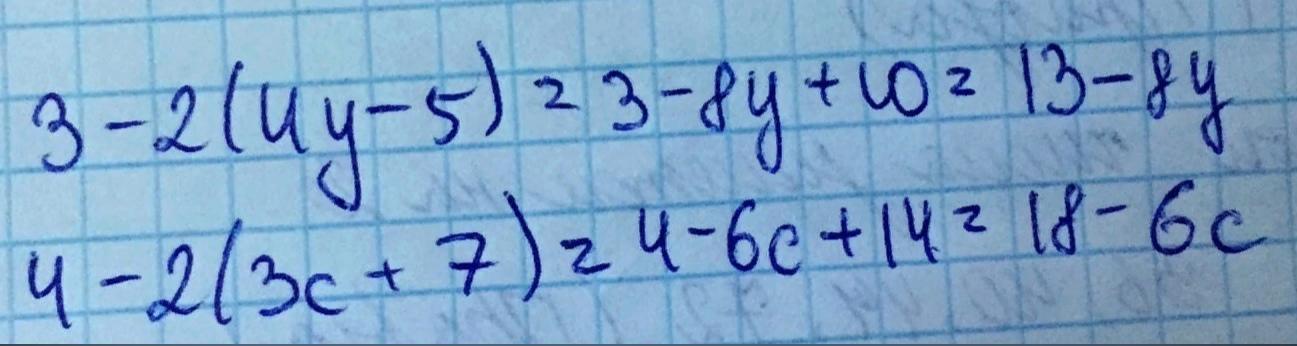 3-2(4y-5)=3-8y+10=13-8y
4-2(3c+7)=4-6c+14=18-6c